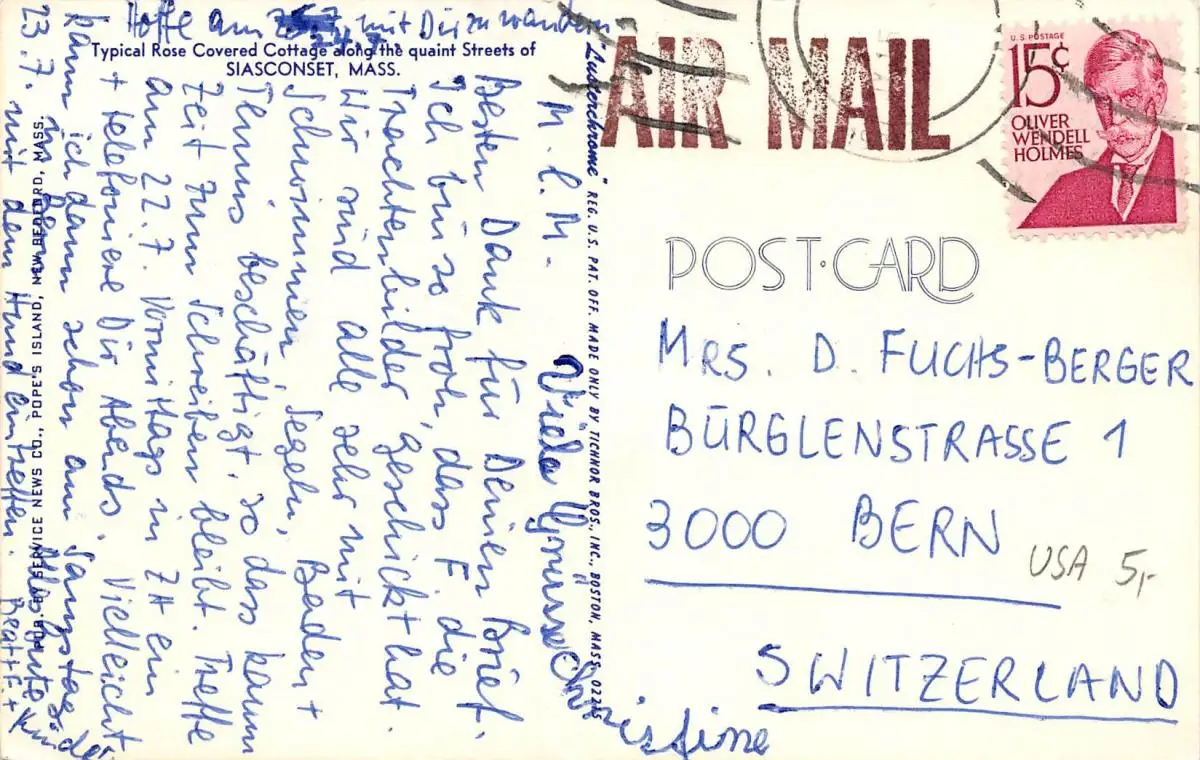 Hoffe am mit Dir zu wandern
Typical Rose Covered Cottage along the quaint Streets of
SIASCONSET, MASS.
M. l. M.
Besten Dank für Deinen Brief.
Ich bin so froh, dass F. die
Trachtenbilder geschickt hat.
Wir sind alle sehr mit
Schwimmen, Segeln, Baden +
Tennis beschäftigt, so dass kaum
Zeit zum Schreiben bleibt. Treffe
am 22.7. Vormittags in ZH ein
+ telefoniere Dir Abends. Vielleicht
kann ich dann schon am Samstag, den
23.7. in Bern
mit dem Hund eintreffen.
Alles Gute
Beat + F. + Kinder
Viele Grüsse Christine
PUB. BY SERVICE NEWS CO., POPE'S ISLAND, NEW BEDFORD, MASS.
"Lusterchrome" REG. U.S. PAT. OFF. MADE ONLY BY TICHNOR BROS., INC., BOSTON, MASS. 02215
AIR MAIL
U.S. POSTAGE
15¢
OLIVER
WENDELL
HOLMES
POST·CARD
MRS. D. FUCHS-BERGER
BÜRGLENSTRASSE 1
3000 BERN
USA 5,-
SWITZERLAND